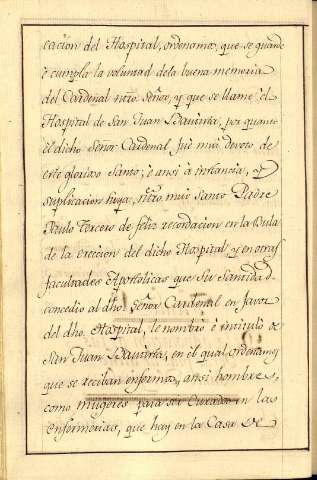 cacion del Hospital, ordenamos, que se guarde
è cumpla la voluntad dela buena memoria
del Cardenal ntro. Señor, y que se llame el
Hospital de San Juan Bautista, por quanto
el dicho Señor Cardenal fue muy devoto de
este glorioso Santo; è ansi à instancia, y
suplicacion suya, ntro. muy Santo Padre
Paulo Tercero de feliz recordacion en la Bula
de la ereccion del dicho Hospital, y en otras
facultades Apostolicas que Su Santidad
concedio al dho. Señor Cardenal en favor
del dho. Hospital, le nombrò è intitulò de
San Juan Bautista, en el qual ordenamos
que se reciban enfermos, ansi hombres,
como mugeres para ser curados en las
enfermerias, que hay en la Casa de